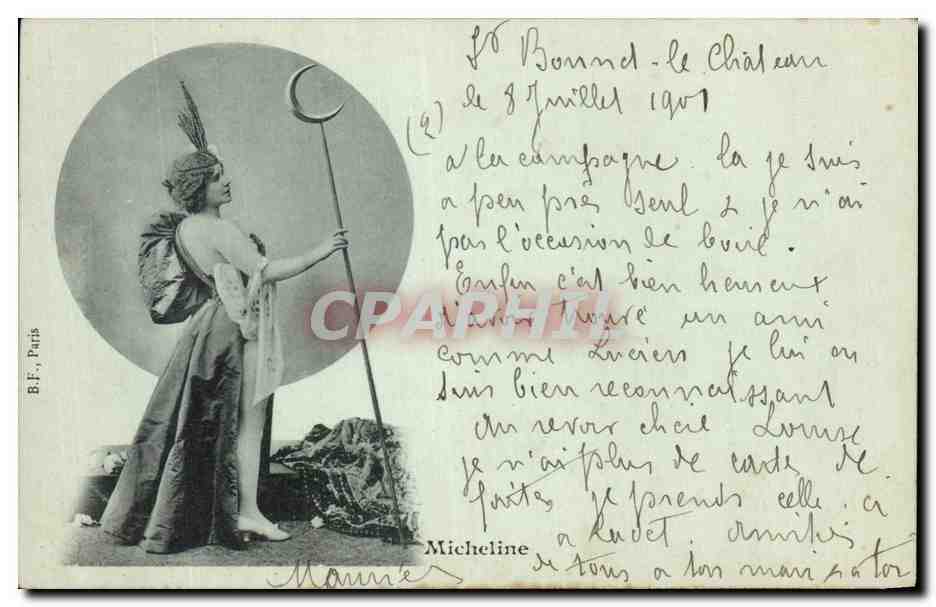 St Bonnet-le Château
le 8 Juillet 1901
(2)
a la campagne. la je suis
a peu près seul & je n'ai
pas l'occasion de boire.
Enfin c'est bien heureux
d'avoir trouvé un ami
comme Lucien je lui en
suis bien reconnaissant
Au revoir chère Louise
je n'ai plus de cartes de
je prends celle ci
a amitiés
de tous a ton mari & a toi
Micheline
B.F., Paris
CPAPHIL